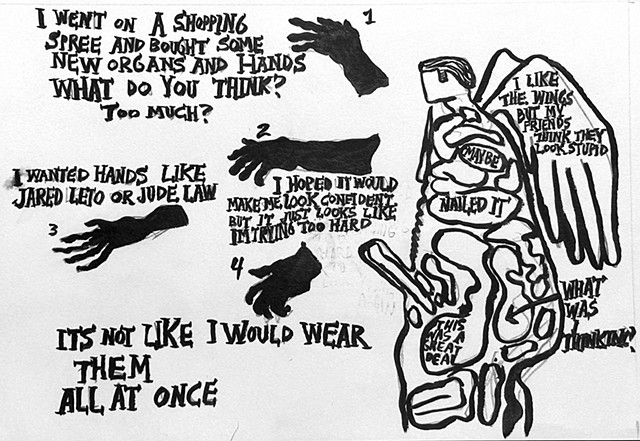 I WENT ON A SHOPPING
SPREE AND BOUGHT SOME
NEW ORGANS AND HANDS
WHAT DO YOU THINK?
TOO MUCH?
1
2
I WANTED HANDS LIKE
JARED LETO OR JUDE LAW
3
I HOPED IT WOULD
MAKE ME LOOK CONFIDENT
BUT IT JUST LOOKS LIKE
I'M TRYING TOO HARD
4
ITS NOT LIKE I WOULD WEAR
THEM
ALL AT ONCE
I LIKE
THE WINGS
BUT MY
FRIENDS
THINK THEY
LOOK STUPID
MAYBE
NAILED IT
THIS
WAS A
GREAT
DEAL
WHAT
WAS
I
THINKING?